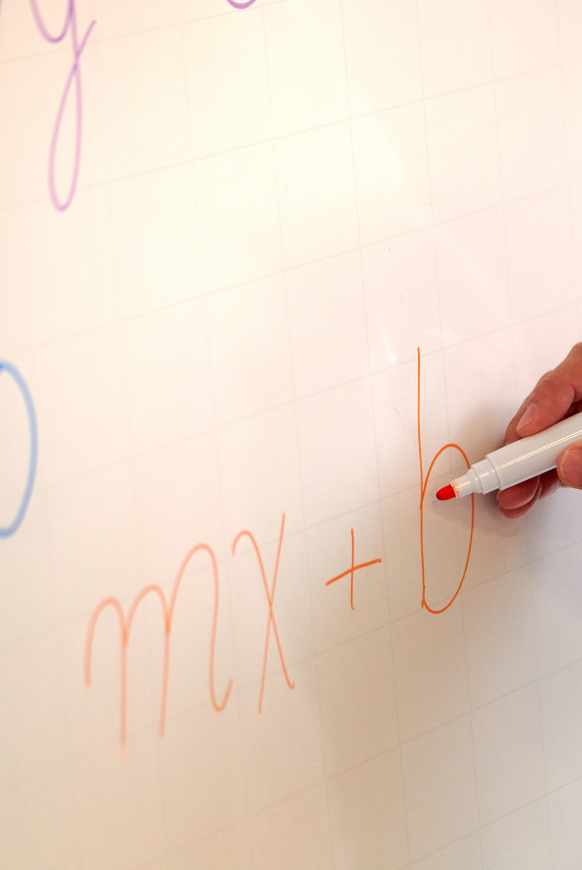 y
mx + b